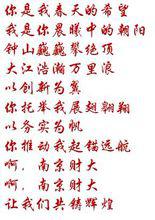 你是我春天的希望
我是你晨曦中的朝阳
钟山巍巍攀绝顶
大江浩瀚万里浪
以创新为翼
你托举我展翅翱翔
以务实为帆
你推动我起锚远航
啊，南京财大
啊，南京财大
让我们共铸辉煌